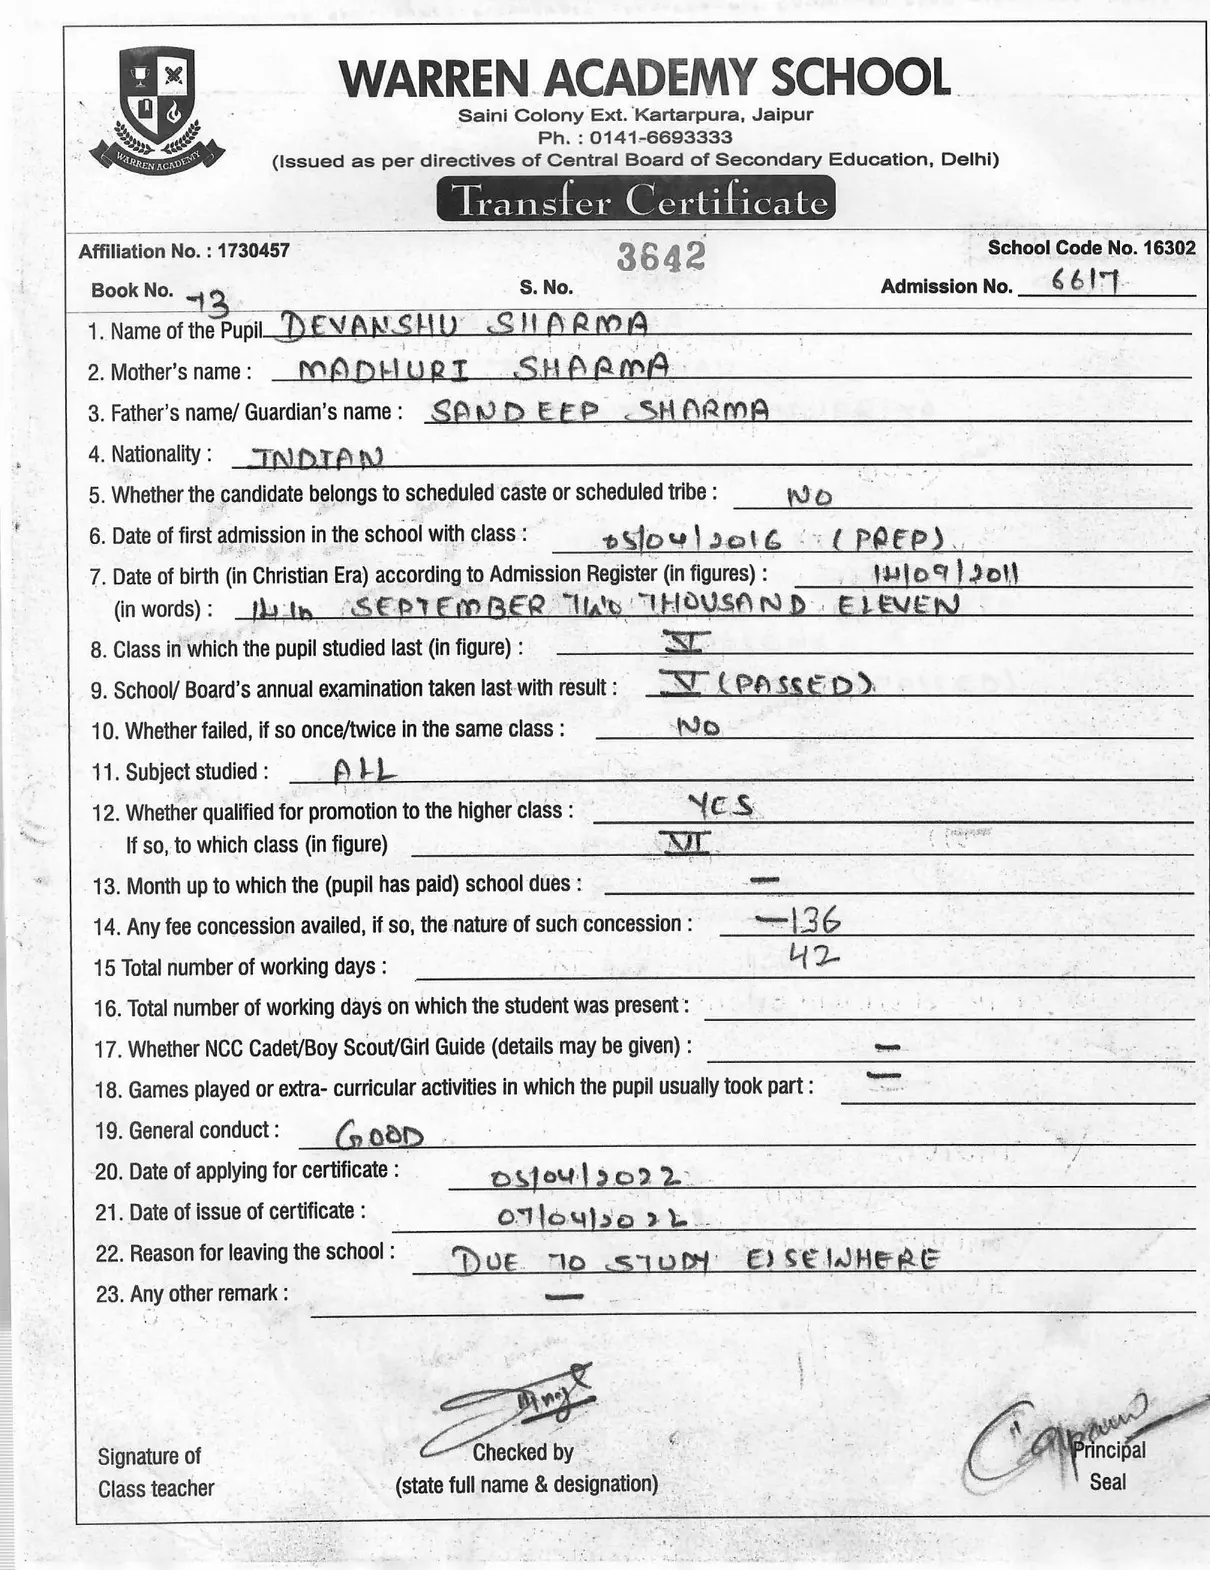 WARREN ACADEMY
WARREN ACADEMY SCHOOL
Saini Colony Ext. Kartarpura, Jaipur
Ph. : 0141-6693333
(Issued as per directives of Central Board of Secondary Education, Delhi)
Transfer Certificate
Affiliation No. : 1730457 3642 School Code No. 16302
Book No. 73 S. No. Admission No. 6617
1. Name of the Pupil DEVANSHU SHARMA
2. Mother's name : MADHURI SHARMA
3. Father's name/ Guardian's name : SANDEEP SHARMA
4. Nationality : INDIAN
5. Whether the candidate belongs to scheduled caste or scheduled tribe : NO
6. Date of first admission in the school with class : 05/04/2016 (PREP)
7. Date of birth (in Christian Era) according to Admission Register (in figures) : 14/09/2011
(in words) : 14th SEPTEMBER TWO THOUSAND ELEVEN
8. Class in which the pupil studied last (in figure) : VI
9. School/ Board's annual examination taken last with result : V (PASSED)
10. Whether failed, if so once/twice in the same class : NO
11. Subject studied : ALL
12. Whether qualified for promotion to the higher class : YES
If so, to which class (in figure) VI
13. Month up to which the (pupil has paid) school dues : —
14. Any fee concession availed, if so, the nature of such concession : — 136
15 Total number of working days : 42
16. Total number of working days on which the student was present :
17. Whether NCC Cadet/Boy Scout/Girl Guide (details may be given) : —
18. Games played or extra- curricular activities in which the pupil usually took part : —
19. General conduct : GOOD
20. Date of applying for certificate : 05/04/2022
21. Date of issue of certificate : 07/04/2022
22. Reason for leaving the school : DUE TO STUDY ELSEWHERE
23. Any other remark : —
Signature of Checked by Principal
Class teacher (state full name & designation) Seal